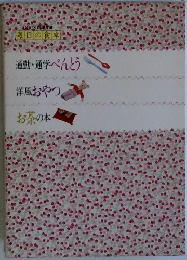 通勤・通学べんとう
洋風おやつ
お茶の本